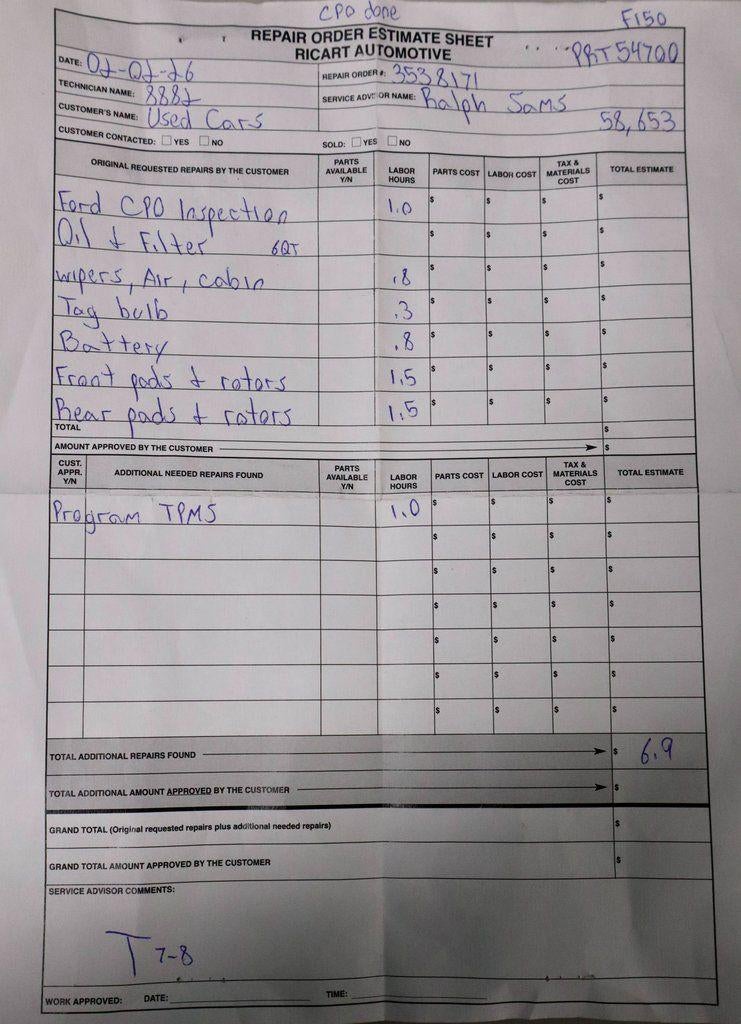 CPO done
F150
REPAIR ORDER ESTIMATE SHEET
RICART AUTOMOTIVE
PRT 54700
DATE: 02-02-26
REPAIR ORDER #: 3538171
TECHNICIAN NAME: 8882
SERVICE ADVISOR NAME: Ralph Sams
CUSTOMER'S NAME: Used Cars
58,653
CUSTOMER CONTACTED: YES NO
SOLD: YES NO
ORIGINAL REQUESTED REPAIRS BY THE CUSTOMER PARTS AVAILABLE Y/N LABOR HOURS PARTS COST LABOR COST TAX & MATERIALS COST TOTAL ESTIMATE
Ford CPO Inspection 1.0 $ $ $ $
Oil & Filter 6QT $ $ $ $
wipers, Air, cabin .8 $ $ $ $
Tag bulb .3 $ $ $ $
Battery .8 $ $ $ $
Front pads & rotors 1.5 $ $ $ $
Rear pads & rotors 1.5 $ $ $ $
TOTAL $
AMOUNT APPROVED BY THE CUSTOMER $
CUST. APPR. Y/N ADDITIONAL NEEDED REPAIRS FOUND PARTS AVAILABLE Y/N LABOR HOURS PARTS COST LABOR COST TAX & MATERIALS COST TOTAL ESTIMATE
Program TPMS 1.0 $ $ $ $
$ $ $ $
$ $ $ $
$ $ $ $
$ $ $ $
$ $ $ $
$ $ $ $
TOTAL ADDITIONAL REPAIRS FOUND $ 6.9
TOTAL ADDITIONAL AMOUNT APPROVED BY THE CUSTOMER $
GRAND TOTAL (Original requested repairs plus additional needed repairs) $
GRAND TOTAL AMOUNT APPROVED BY THE CUSTOMER $
SERVICE ADVISOR COMMENTS:
T 7-8
WORK APPROVED: DATE: TIME: